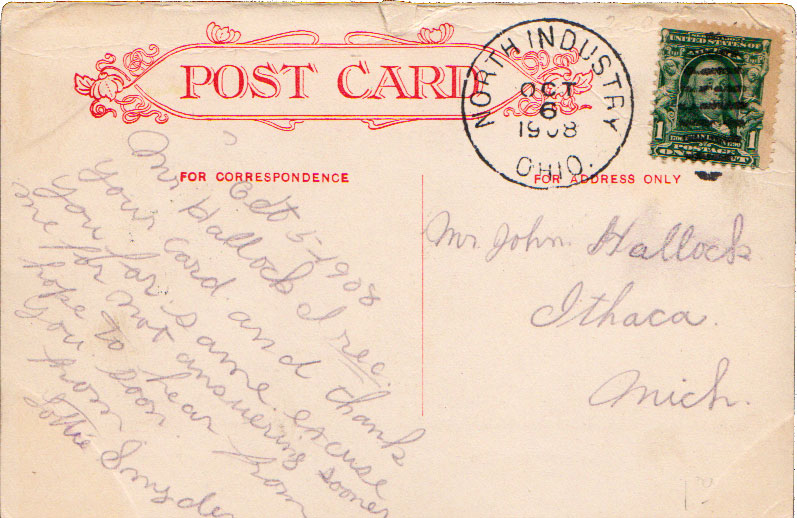 POST CARD
NORTH INDUSTRY
OCT
6
1908
OHIO.
UNITED STATES OF
1
1
FOR CORRESPONDENCE
FOR ADDRESS ONLY
Oct 5-1908
Mr Hallock I rec.
your card and thank
you for same excuse
me for not answering sooner
hope to hear from
you soon.
from
Lottie Snyder
Mr John. Hallock
Ithaca.
Mich.